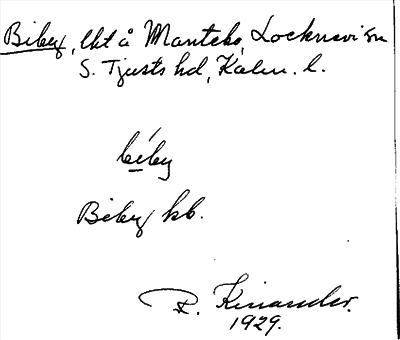 Biby, lht å Mantebo, Locknevi sn
S. Tjusts hd, Kalm. l.
bíby
Biby kb.
R. Kinander.
1929.